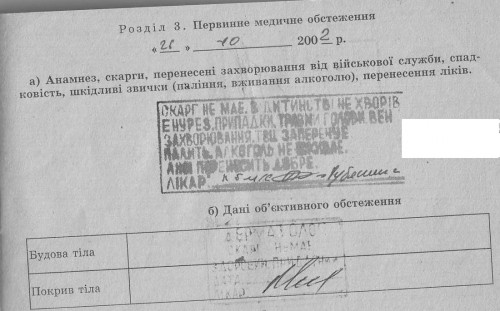 Розділ 3. Первинне медичне обстеження
„26" 10 2002 р.
а) Анамнез, скарги, перенесені захворювання від військової служби, спад-
ковість, шкідливі звички (паління, вживання алкоголю), перенесення ліків.
СКАРГ НЕ МАЕ. В ДИТИНСТВІ НЕ ХВОРІВ
ЕНУРЕЗ, ПРИПАДКИ, ТРАВМИ ГОЛОВИ, ВЕН
ЗАХВОРЮВАННЯ, ТБЦ ЗАПЕРЕЧУЕ
ПАЛИТЬ, АЛКОГОЛЬ НЕ
ПЕРЕНОСИТЬ ДОБРЕ.
ЛІКАР
б) Дані об'єктивного обстеження
Будова тіла
ДЕРМАТОЛОГ
Покрив тіла